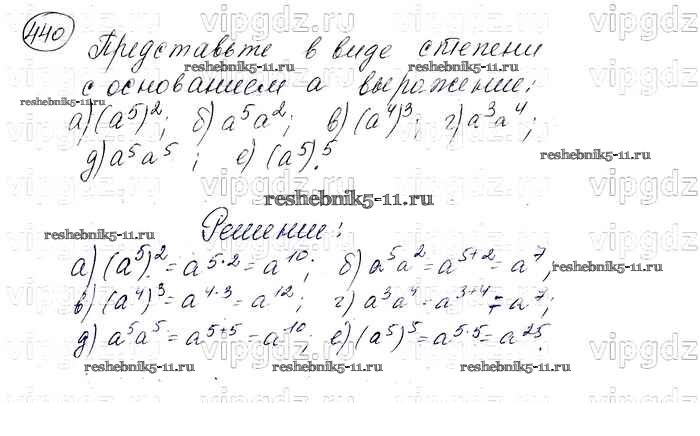 440
Представьте в виде степени
с основанием а выражение:
а) (a⁵)²; б) a⁵a²; в) (a⁴)³; г) a³a⁴;
д) a⁵a⁵; е) (a⁵)⁵.
Решение:
а) (a⁵)² = a⁵·² = a¹⁰; б) a⁵a² = a⁵⁺² = a⁷;
в) (a⁴)³ = a⁴·³ = a¹²; г) a³a⁴ = a³⁺⁴ = a⁷;
д) a⁵a⁵ = a⁵⁺⁵ = a¹⁰; е) (a⁵)⁵ = a⁵·⁵ = a²⁵.
vipgdz
reshebnik5-11.ru